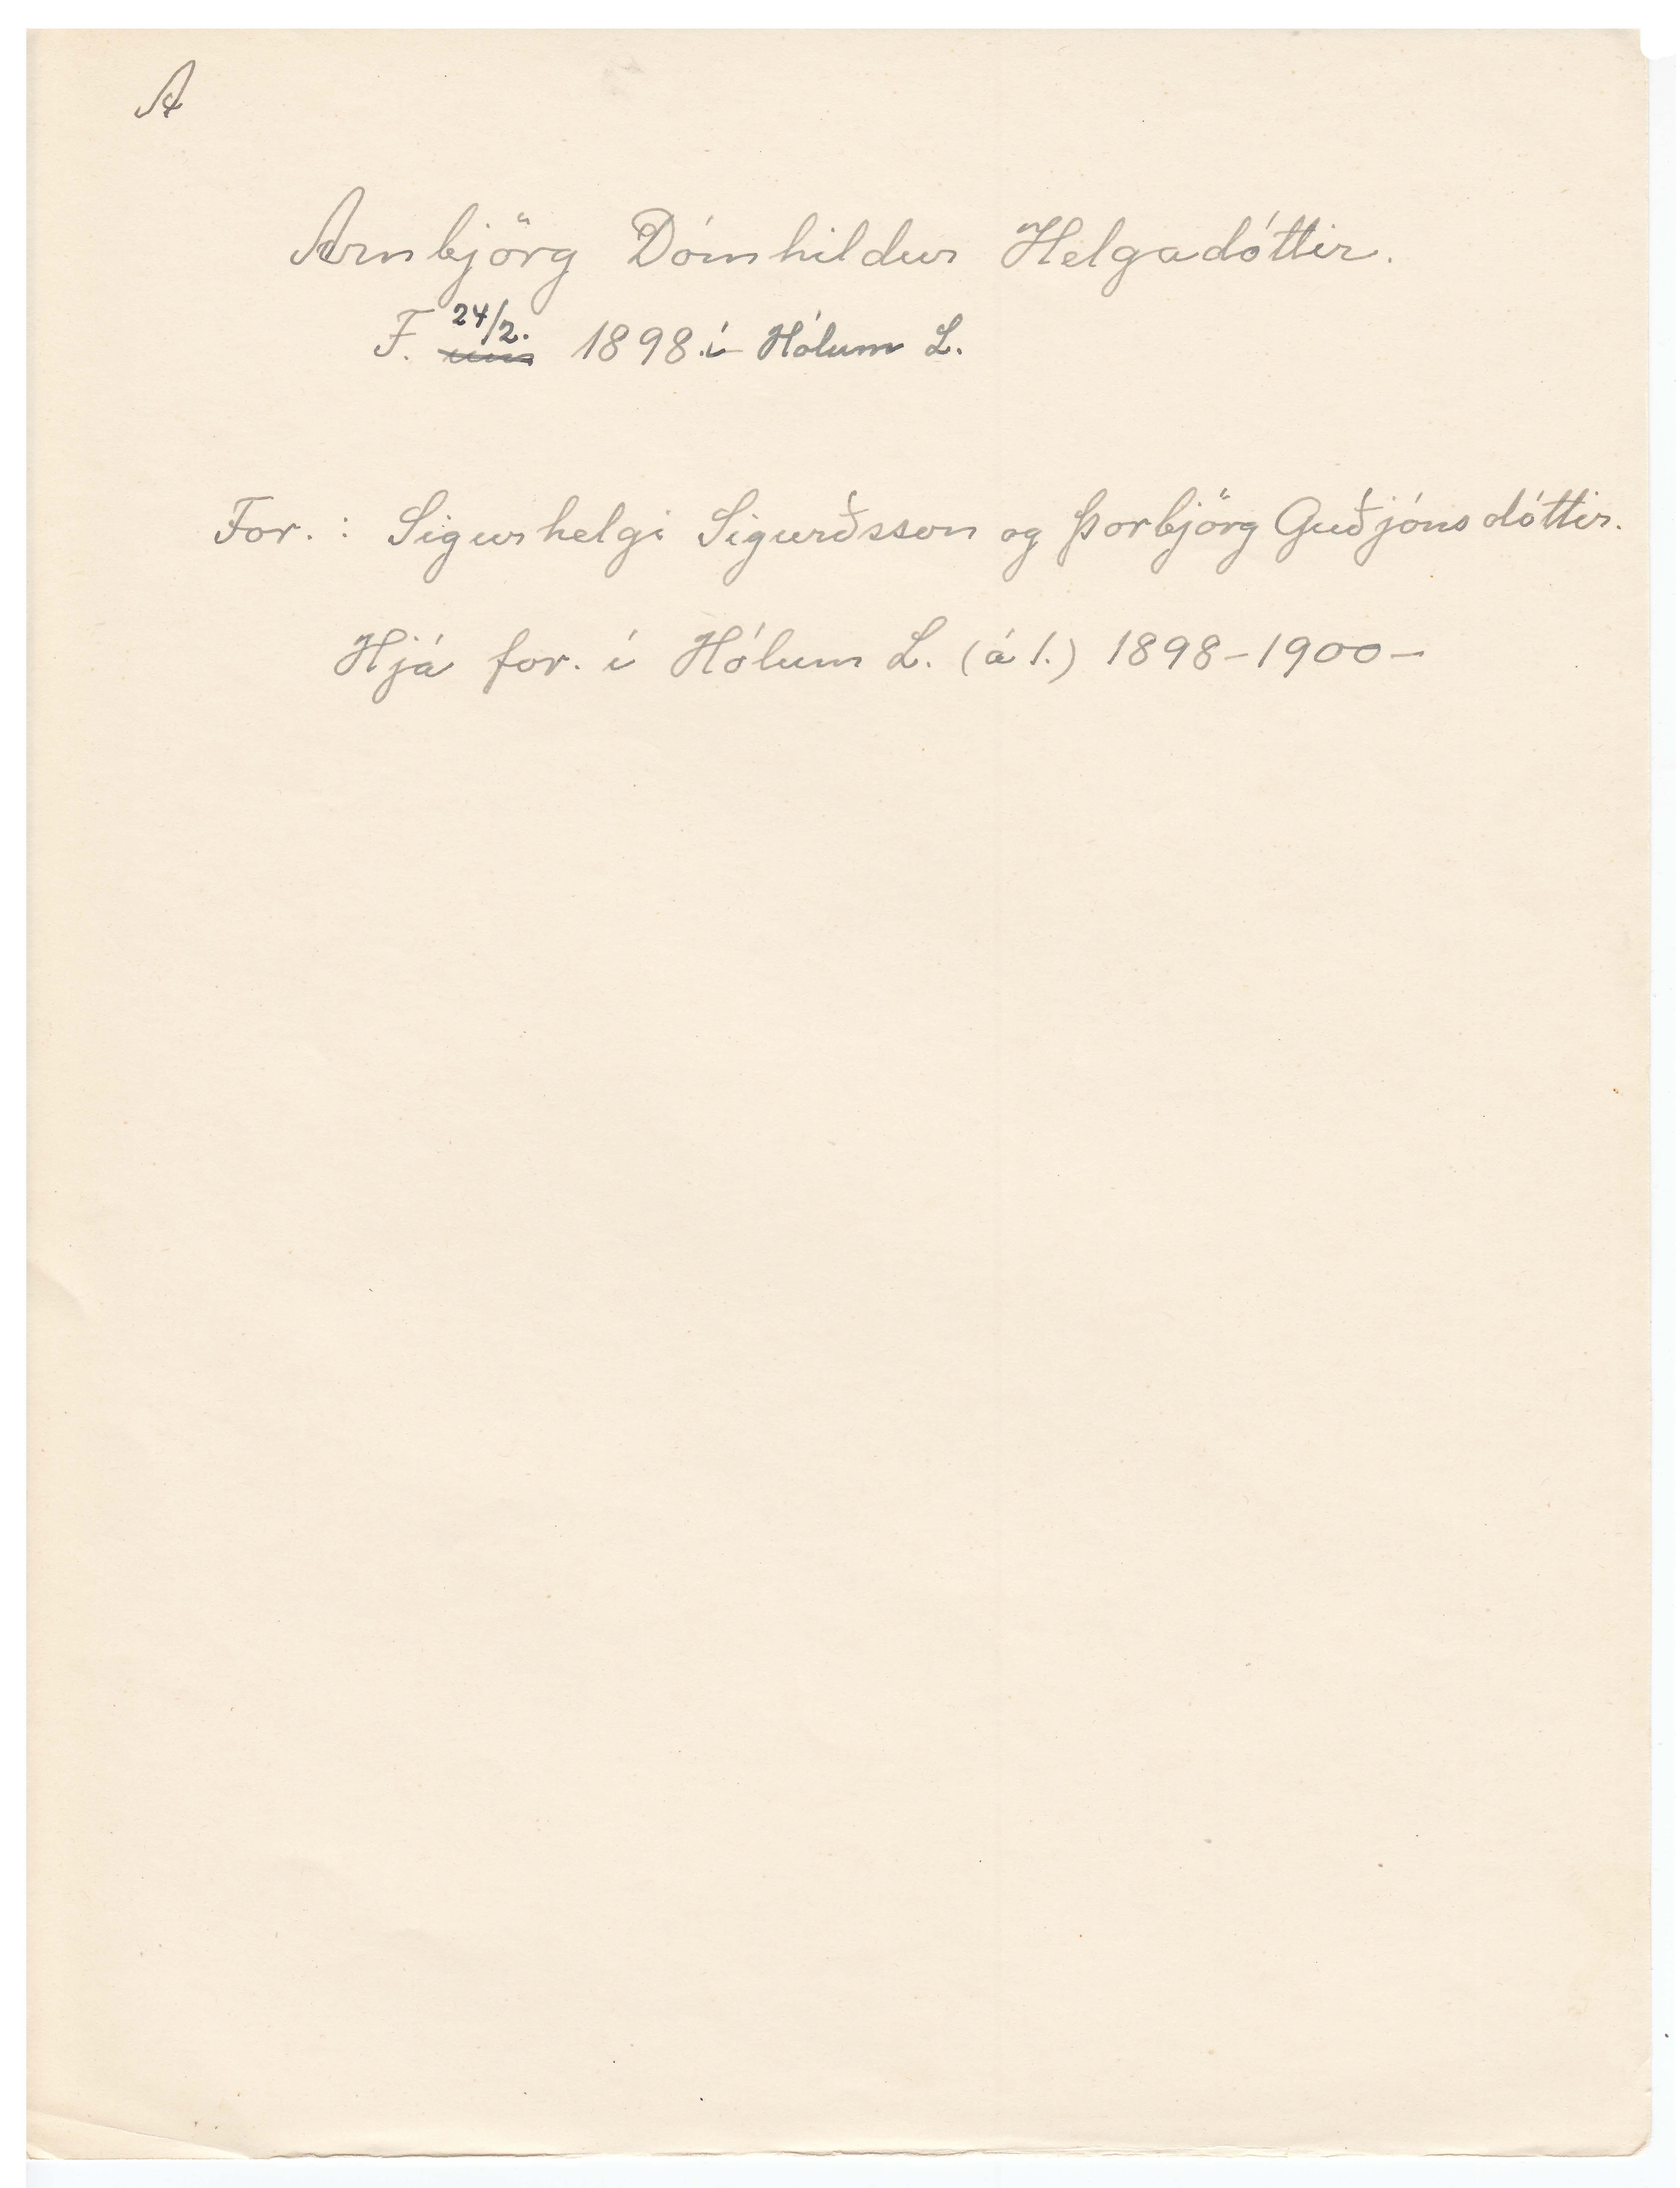 A
Arnbjörg Dómhildur Helgadóttir.
F. 24/2. um 1898 í Hólum L.
For. : Sigurhelgi Sigurðsson og Þorbjörg Guðjónsdóttir.
Hjá for. í Hólum L. (á 1.) 1898-1900-